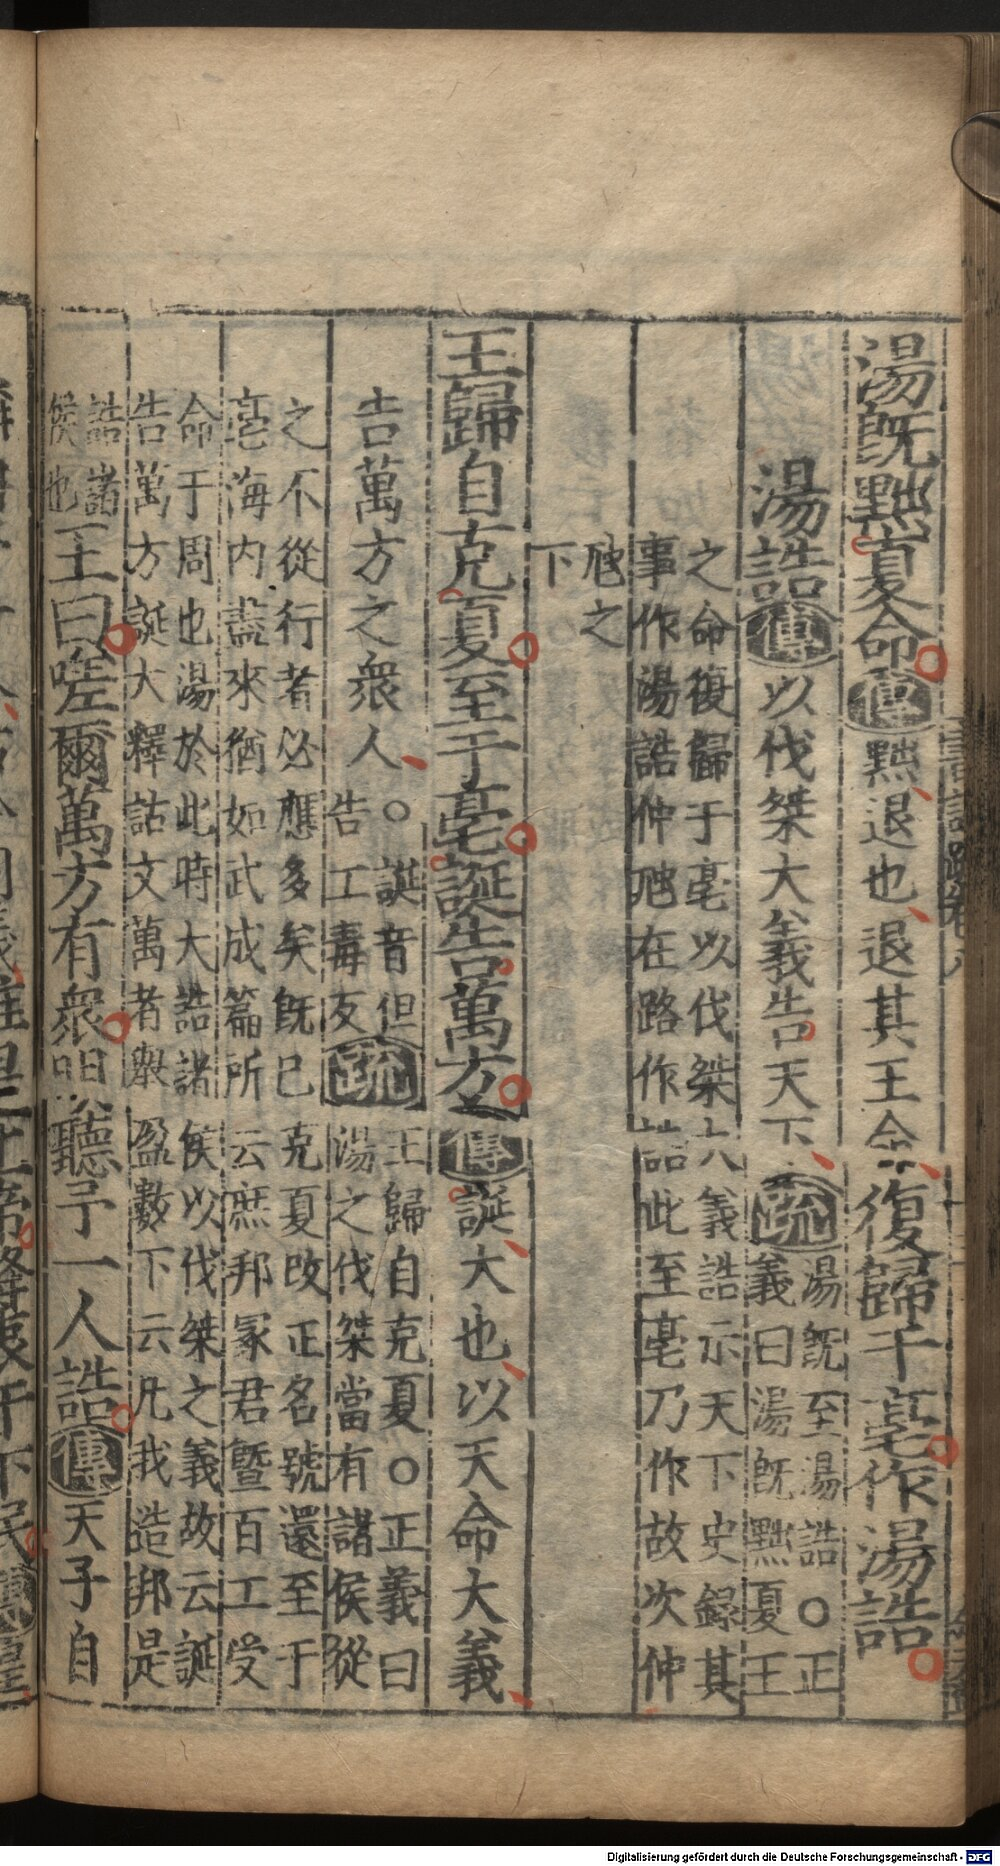 湯旣黜夏命傳黜退也退其王命復歸于亳作湯誥
湯誥傳以伐桀大義告天下疏
湯旣至湯誥○正
義曰湯旣黜夏王
之命復歸于亳以伐桀大義誥示天下史錄其
事作湯誥仲虺在路作誥此至亳乃作故次仲
虺之
下
王歸自克夏至于亳誕告萬方傳誕大也以天命大義
告萬方之衆人○
誕音但
告工毒反疏
王歸自克夏○正義曰
湯之伐桀當有諸侯從
之不從行者必應多矣旣已克夏改正名號還至于
亳海內盡來猶如武成篇所云庶邦冢君曁百工受
命于周也湯於此時大誥諸侯以伐桀之義故云誕
告萬方誕大釋詁文萬者舉盈數下云凡我造邦是
誥諸
侯也
王曰嗟爾萬方有衆明聽予一人誥傳天子自
Digitalisierung gefördert durch die Deutsche Forschungsgemeinschaft - DFG